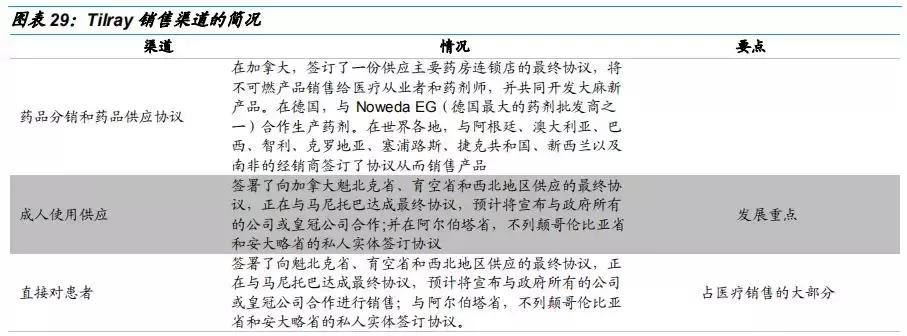 图表 29：Tilray 销售渠道的简况
渠道 情况 要点
在加拿大，签订了一份供应主要药房连锁店的最终协议，将
不可燃产品销售给医疗从业者和药剂师，并共同开发大麻新
药品分销和药品供应协议
产品。在德国，与 Noweda EG（德国最大的药剂批发商之
一）合作生产药剂。在世界各地，与阿根廷、澳大利亚、巴
西、智利、克罗地亚、塞浦路斯、捷克共和国、新西兰以及
南非的经销商签订了协议从而销售产品
签署了向加拿大魁北克省、育空省和西北地区供应的最终协
成人使用供应
议，正在与马尼托巴达成最终协议，预计将宣布与政府所有
发展重点
的公司或皇冠公司合作;并在阿尔伯塔省，不列颠哥伦比亚省
和安大略省的私人实体签订协议
签署了向魁北克省、育空省和西北地区供应的最终协议，正
直接对患者
在与马尼托巴达成最终协议，预计将宣布与政府所有的公司
占医疗销售的大部分
或皇冠公司合作进行销售；与阿尔伯塔省，不列颠哥伦比亚
省和安大略省的私人实体签订协议。